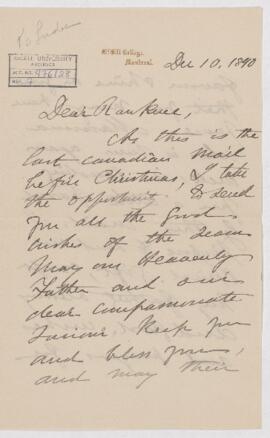 McGill College,
Montreal.
Dec 10, 1890
McGILL UNIVERSITY
ARCHIVES
ACC. NO.
REF.
Dear
As this is the
last Canadian mail
before Christmas, I take
the opportunity to send
you all the good
wishes of the season
May our Heavenly
Father and our
dear compassionate
Saviour keep you
and bless you,
and may their